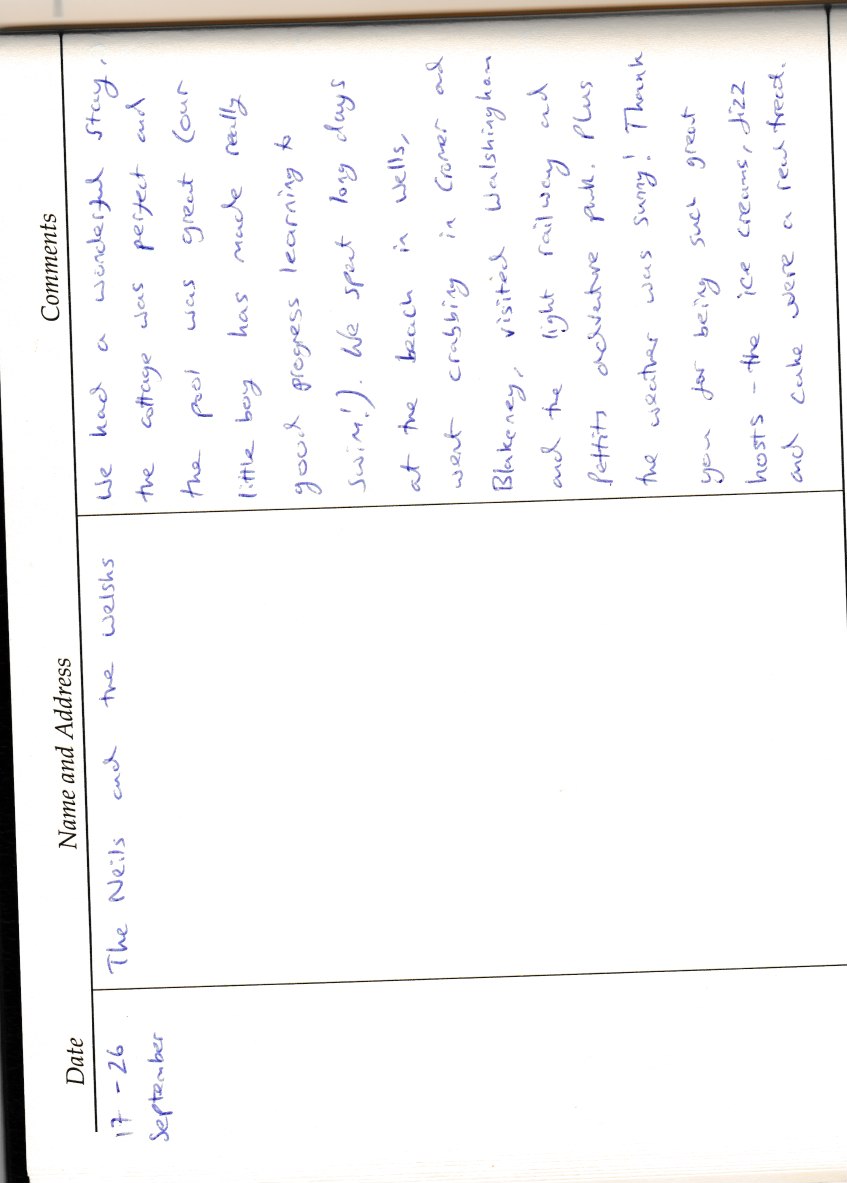 Date
Name and Address
Comments
17 - 26
September
The Neils and the Welshs
We had a wonderful stay,
the cottage was perfect and
the pool was great (our
little boy has made really
good progress learning to
swim!). We spent long days
at the beach in Wells,
went crabbing in Cromer and
Blakeney, visited Walshingham
and the light railway and
Pettits adventure park. Plus
the weather was sunny! Thank
you for being such great
hosts - the ice creams, fizz
and cake were a real treat.